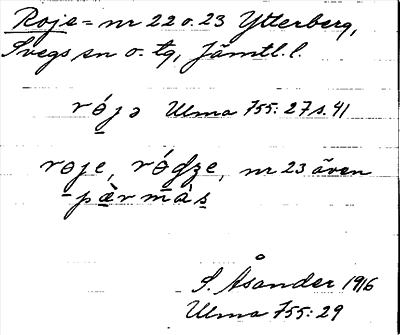 Roje = nr 22 o. 23 Ytterberg,
Svegs sn o. tg, Jämtl. l.
rójə Ulma 755:27 s. 41
roje, ródze, nr 23 även
-pæ̀rmà̱s
S. Åsander 1916
Ulma 755:29